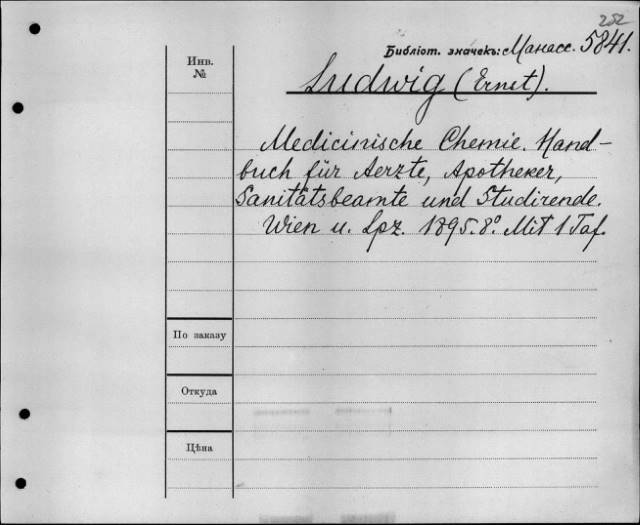 252
Библіот. значекъ: Манасс. 5841.
Инв.
№
Ludwig (Ernst).
Medicinische Chemie. Hand-
buch für Aerzte, Apotheker,
Sanitätsbeamte und Studirende.
Wien u. Lpz. 1895. 8º. Mit 1 Taf.
По заказу
Откуда
Цѣна